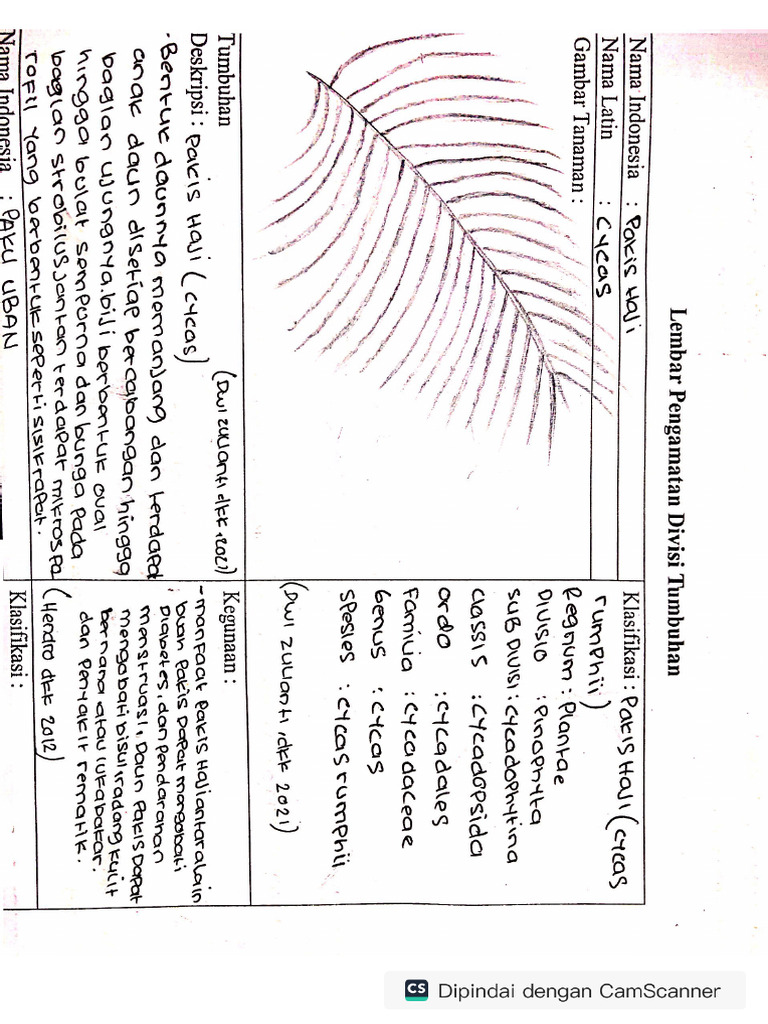 Lembar Pengamatan Divisi Tumbuhan
Nama Indonesia : Pakis Haji
Nama Latin : Cycas
Gambar Tanaman :
(Dwi Zulianti dkk, 2021)
Klasifikasi : Pakis Haji (cycas
rumphii)
Regnum : Plantae
Divisio : Pinophyta
Sub Divisi : Cycadophytina
Classis : Cycadopsida
Ordo : Cycadales
Familia : Cycadaceae
Genus : Cycas
Spesies : Cycas rumphii
(Dwi Zulianti, dkk 2021)
Tumbuhan
Deskripsi : Pakis Haji (cycas)
- Bentuk daunnya memanjang dan terdapat
anak daun disetiap bercabangan hingga
bagian ujungnya. biji berbentuk oval
hingga bulat sempurna dan bunga pada
bagian strobilus jantan terdapat mikrospo
rofil yang berbentuk seperti sisik rapat.
Kegunaan :
- manfaat Pakis Haji antara lain
buah Pakis Dapat mengobati
Diabetes, dan pendarahan
menstruasi, Daun Pakis Dapat
mengobati bisul radang kulit
bernana atau luka bakar.
dan Penyakit rematik.
(Hendro dkk 2012)
Nama Indonesia : PAKU UBAN
Klasifikasi :
CS Dipindai dengan CamScanner